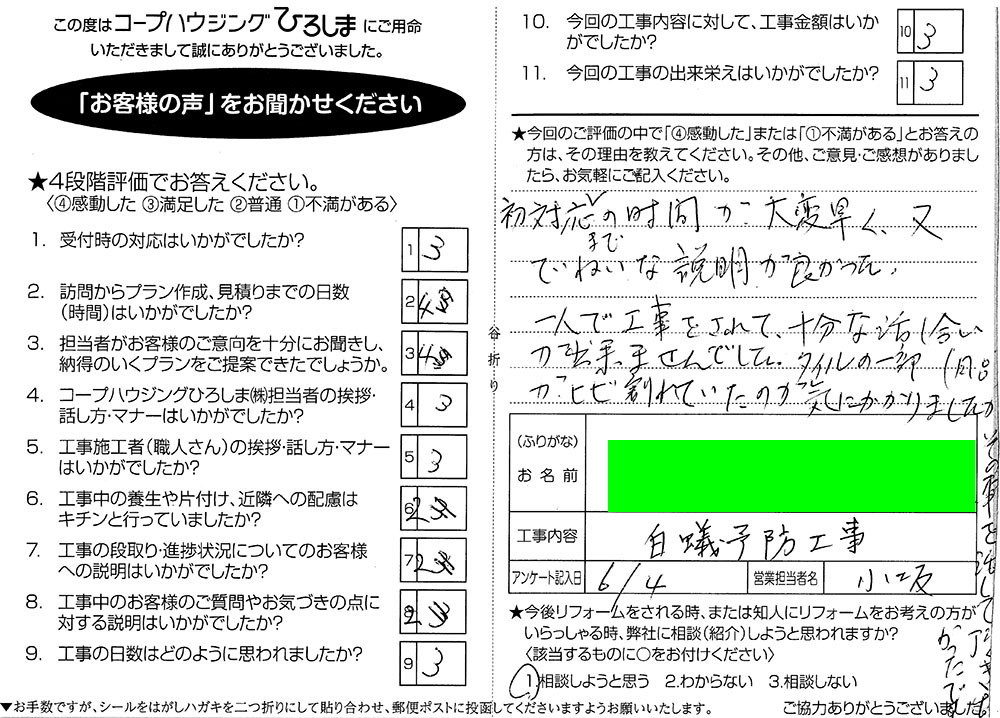 この度はコープハウジングひろしまにご用命
いただきまして誠にありがとうございました。
「お客様の声」をお聞かせください
★4段階評価でお答えください。
〈④感動した ③満足した ②普通 ①不満がある〉
1. 受付時の対応はいかがでしたか？
1 3
2. 訪問からプラン作成、見積りまでの日数
（時間）はいかがでしたか？
2 4
3. 担当者がお客様のご意向を十分にお聞きし、
納得のいくプランをご提案できたでしょうか。
3 4
4. コープハウジングひろしま㈱担当者の挨拶・
話し方・マナーはいかがでしたか？
4 3
5. 工事施工者（職人さん）の挨拶・話し方・マナー
はいかがでしたか？
5 3
6. 工事中の養生や片付け、近隣への配慮は
キチンと行っていましたか？
6 2
7. 工事の段取り・進捗状況についてのお客様
への説明はいかがでしたか？
7 2
8. 工事中のお客様のご質問やお気づきの点に
対する説明はいかがでしたか？
8 2
9. 工事の日数はどのように思われましたか？
9 3
▼お手数ですが、シールをはがしハガキを二つ折りにして貼り合わせ、郵便ポストに投函してくださいますようお願いいたします。
谷折り
10. 今回の工事内容に対して、工事金額はいか
がでしたか？
10 3
11. 今回の工事の出来栄えはいかがでしたか？
11 3
★今回のご評価の中で「④感動した」または「①不満がある」とお答えの
方は、その理由を教えてください。その他、ご意見・ご感想がありまし
たら、お気軽にご記入ください。
初対応までの時間が大変早く、又
ていねいな説明が良かった。
一人で工事をされて、十分な話し合い
が出来ませんでした。タイルの一部
がヒビ割れていたのが気にかかりましたが
その事を話して
かったです
（ふりがな）
お名前
工事内容
白蟻予防工事
アンケート記入日
6/4
営業担当者名
小坂
★今後リフォームをされる時、または知人にリフォームをお考えの方が
いらっしゃる時、弊社に相談（紹介）しようと思われますか？
〈該当するものに○をお付けください〉
1.相談しようと思う 2.わからない 3.相談しない
ご協力ありがとうございました